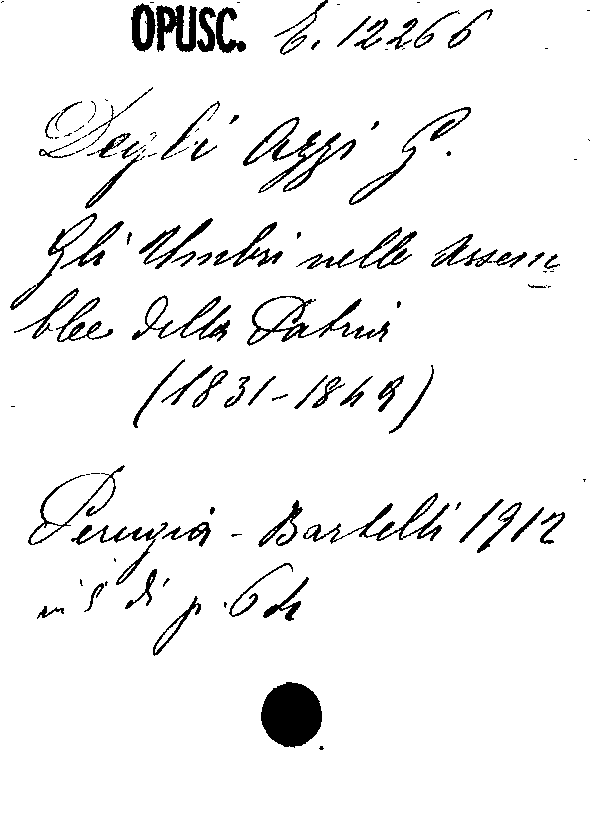 OPUSC. E. 12266
Degli Azzi G.
Gli Umbri nelle Assem
blee della Patria
(1831-1849)
Perugia - Bartelli 1912
in 8° di p. 64